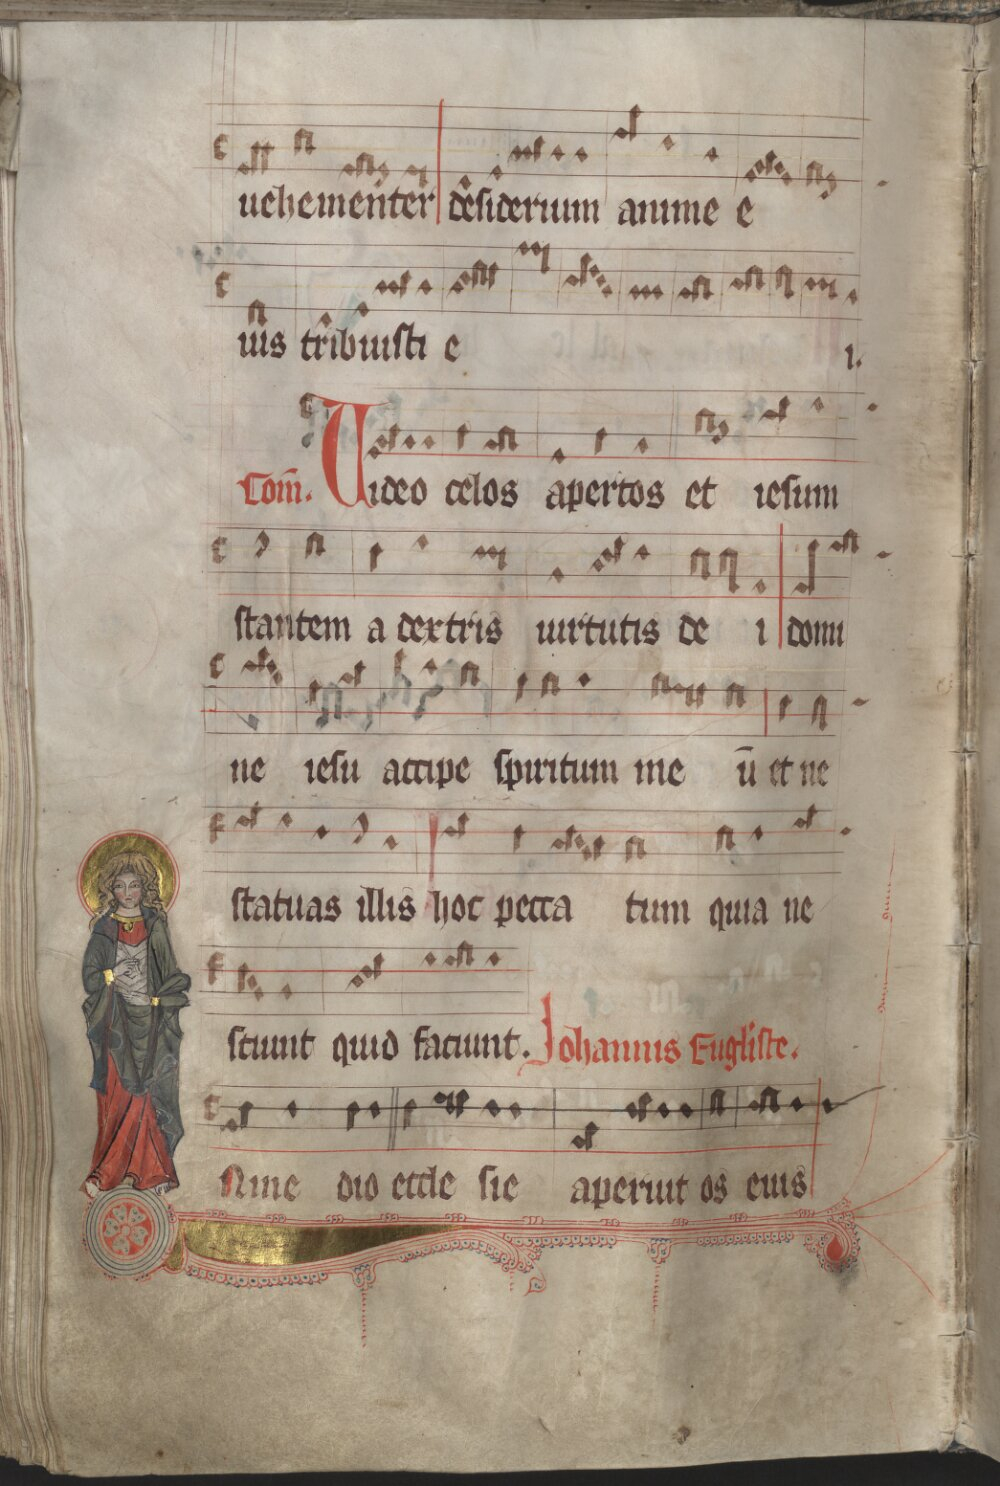 uehementer desiderium anime e
uis tribuisti e i.
Com̄. Uideo celos apertos et iesum
stantem a dextris uirtutis de i domi
ne iesu accipe spiritum me ū et ne
statuas illis hoc pecca tum quia ne
sciunt quid faciunt. Johannis Eugliste.
N me dio eccle sie aperuit os eius